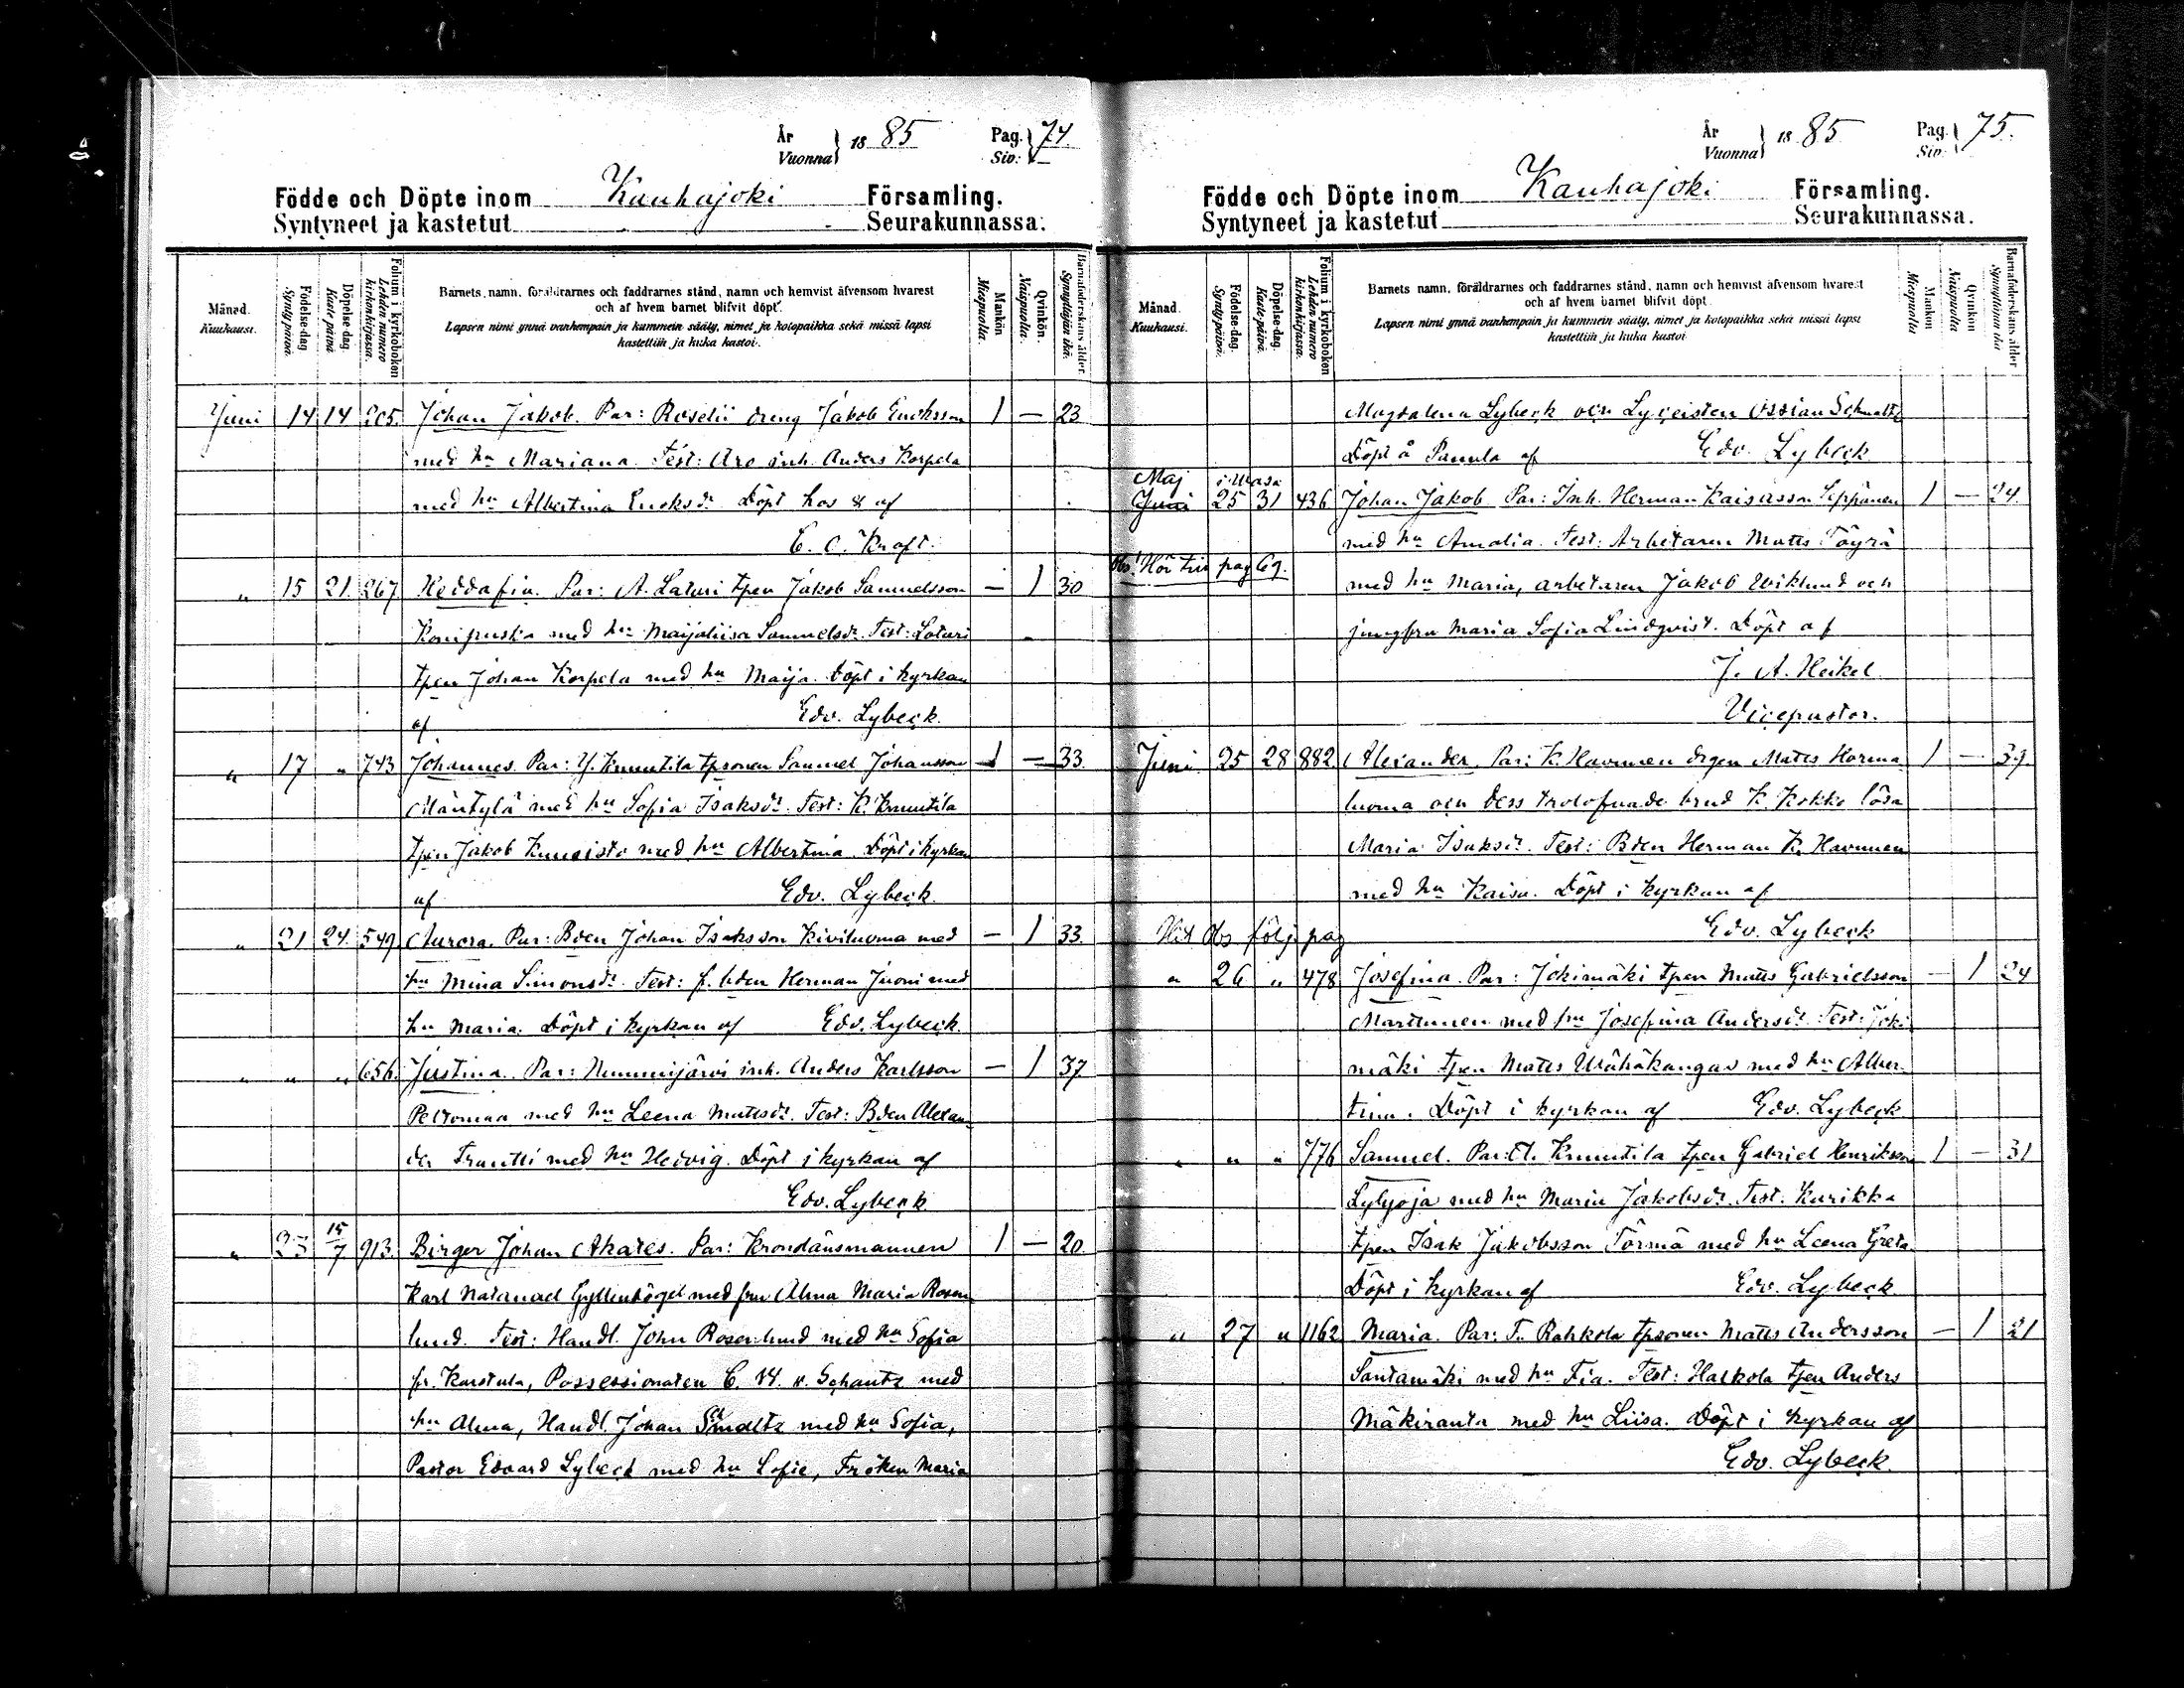 År
Vuonna } 1885 Pag. Siv: } 74.
Födde och Döpte inom Kauhajoki Församling.
Syntyneet ja kastetut Seurakunnassa.
Månad. Kuukausi. Födelse-dag. Syntypäivä. Döpelse-dag. Kaste-päivä. Folium i kyrkoboken Lehden numero kirkonkirjassa. Barnets namn, föräldrarnes och faddrarnes stånd, namn och hemvist äfvensom hvarest och af hvem barnet blifvit döpt. Mankön Miespuolia. Qvinkön. Naispuolia. Barnaföderskans ålder. Synnyttäjän ikä.
Lapsen nimi ynnä vanhempain ja kummein sääty, nimet ja kotopaikka sekä missä lapsi kastettiin ja kuka kastoi.
Juni 14 14 205. Johan Jakob. Par: Roselii dreng Jakob Enoksson 1 — 23
med hu Mariana. Test: Aro inh. Anders Korpela
med hu Albertina Enoksdr. Döpt hos & af
E. C. Kraft.
" 15 21. 267 Heddafia. Par: A. Laturi tpen Jakob Samuelsson — 1 30
Konipuska med hu Maijaliisa Samuelsdr. Test: Laturi
tpen Johan Korpela med hu Maija. Döpt i kyrkan
af Edv. Lybeck.
" 17 " 743 Johannes. Par: Y. Knuutila tpsonen Samuel Johansson 1 — 33.
Mäntylä med hu Sofia Isaksdr. Test: K. Knuutila
tpen Jakob med hu Albertina. Döpt i kyrkan
af Edv. Lybeck.
" 21 24. 549 Aurora. Par: Bden Johan Isaksson Kiviluoma med — 1 33.
hu Mina Simonsdr. Test: f. bden Herman Juoni med
hu Maria. Döpt i kyrkan af Edv. Lybeck.
" " " 656. Justina. Par: Nummijärvi inh. Anders Karlsson — 1 37
Peltomaa med hu Leena Mattsdr. Test: Bden Alexan
der Trantti med hu Hedvig. Döpt i kyrkan af
Edv. Lybeck
" 23 15/7 913. Birger Johan Akates. Par: Kronolänsmannen 1 — 20.
Karl Natanael Gyllenbögel med fru Alma Maria Rosen
lund. Test: Handl. John Rosenlund med hu Sofia
fr. Karstula, Possessionaten C. W. v. Schantz med
hu Alma, Handl. Johan Schmaltz med hu Sofia,
Pastor Edvard Lybeck med hu Sofie, Fröken Maria
År
Vuonna } 1885 Pag. Siv. } 75.
Födde och Döpte inom Kauhajoki Församling.
Syntyneet ja kastetut Seurakunnassa.
Månad. Kuukausi. Födelse-dag. Syntypäivä. Döpelse-dag. Kaste-päivä. Folium i kyrkoboken Lehden numero kirkonkirjassa. Barnets namn, föräldrarnes och faddrarnes stånd, namn och hemvist äfvensom hvarest och af hvem barnet blifvit döpt. Mankön Miespuolia Qvinkön Naispuolia Barnaföderskans ålder Synnyttäjän ikä
Lapsen nimi ynnä vanhempain ja kummein sääty, nimet ja kotopaikka sekä missä lapsi kastettiin ja kuka kastoi.
Magdalena Lybeck och Lyceisten Ossian Schmaltz
Döpt å Panula af Edv. Lybeck
Maj i Wasa
Juni 25 31 436 Johan Jakob Par: Inh. Herman Kaisasson Seppänen 1 — 24.
med hu Amalia. Test: Arbetaren Matts Töyrä
Obs! Hör till pag 69.
med hu Maria, arbetaren Jakob Wiklund och
jungfru Maria Sofia Lindqvist. Döpt af
J. A. Heikel
Vicepastor.
Juni 25 28 882. Alexander. Par: K. Havunen drgen Matts Harma 1 — 39.
luoma och dess trolofvade brud K. Kokko lösa
Maria Isaksdr. Test: Bden Herman K. Havunen
med hu Kaisa. Döpt i kyrkan af
Hit Obs följ. pag Edv. Lybeck
" 26 " 478 Josefina. Par: Jokimäki tpen Matts Gabrielsson — 1 24
Marttunen med hu Josefina Andersdr. Test: Joki
mäki tpen Matts Wähäkangas med hu Alber
tina. Döpt i kyrkan af Edv. Lybeck.
" " " 776 Samuel. Par: A. Knuutila tpen Gabriel Henriksson 1 — 31
Lylyoja med hu Maria Jakobsdr. Test: Kurikka
tpen Isak Jakobsson Törmä med hu Leena Greta.
Döpt i kyrkan af Edv. Lybeck
" 27 " 1162 Maria. Par: T. Rahkola tpsonen Matts Andersson — 1 21
Santamäki med hu Fia. Test: Harkola tpen Anders
Mäkiranta med hu Liisa. Döpt i kyrkan af
Edv. Lybeck.